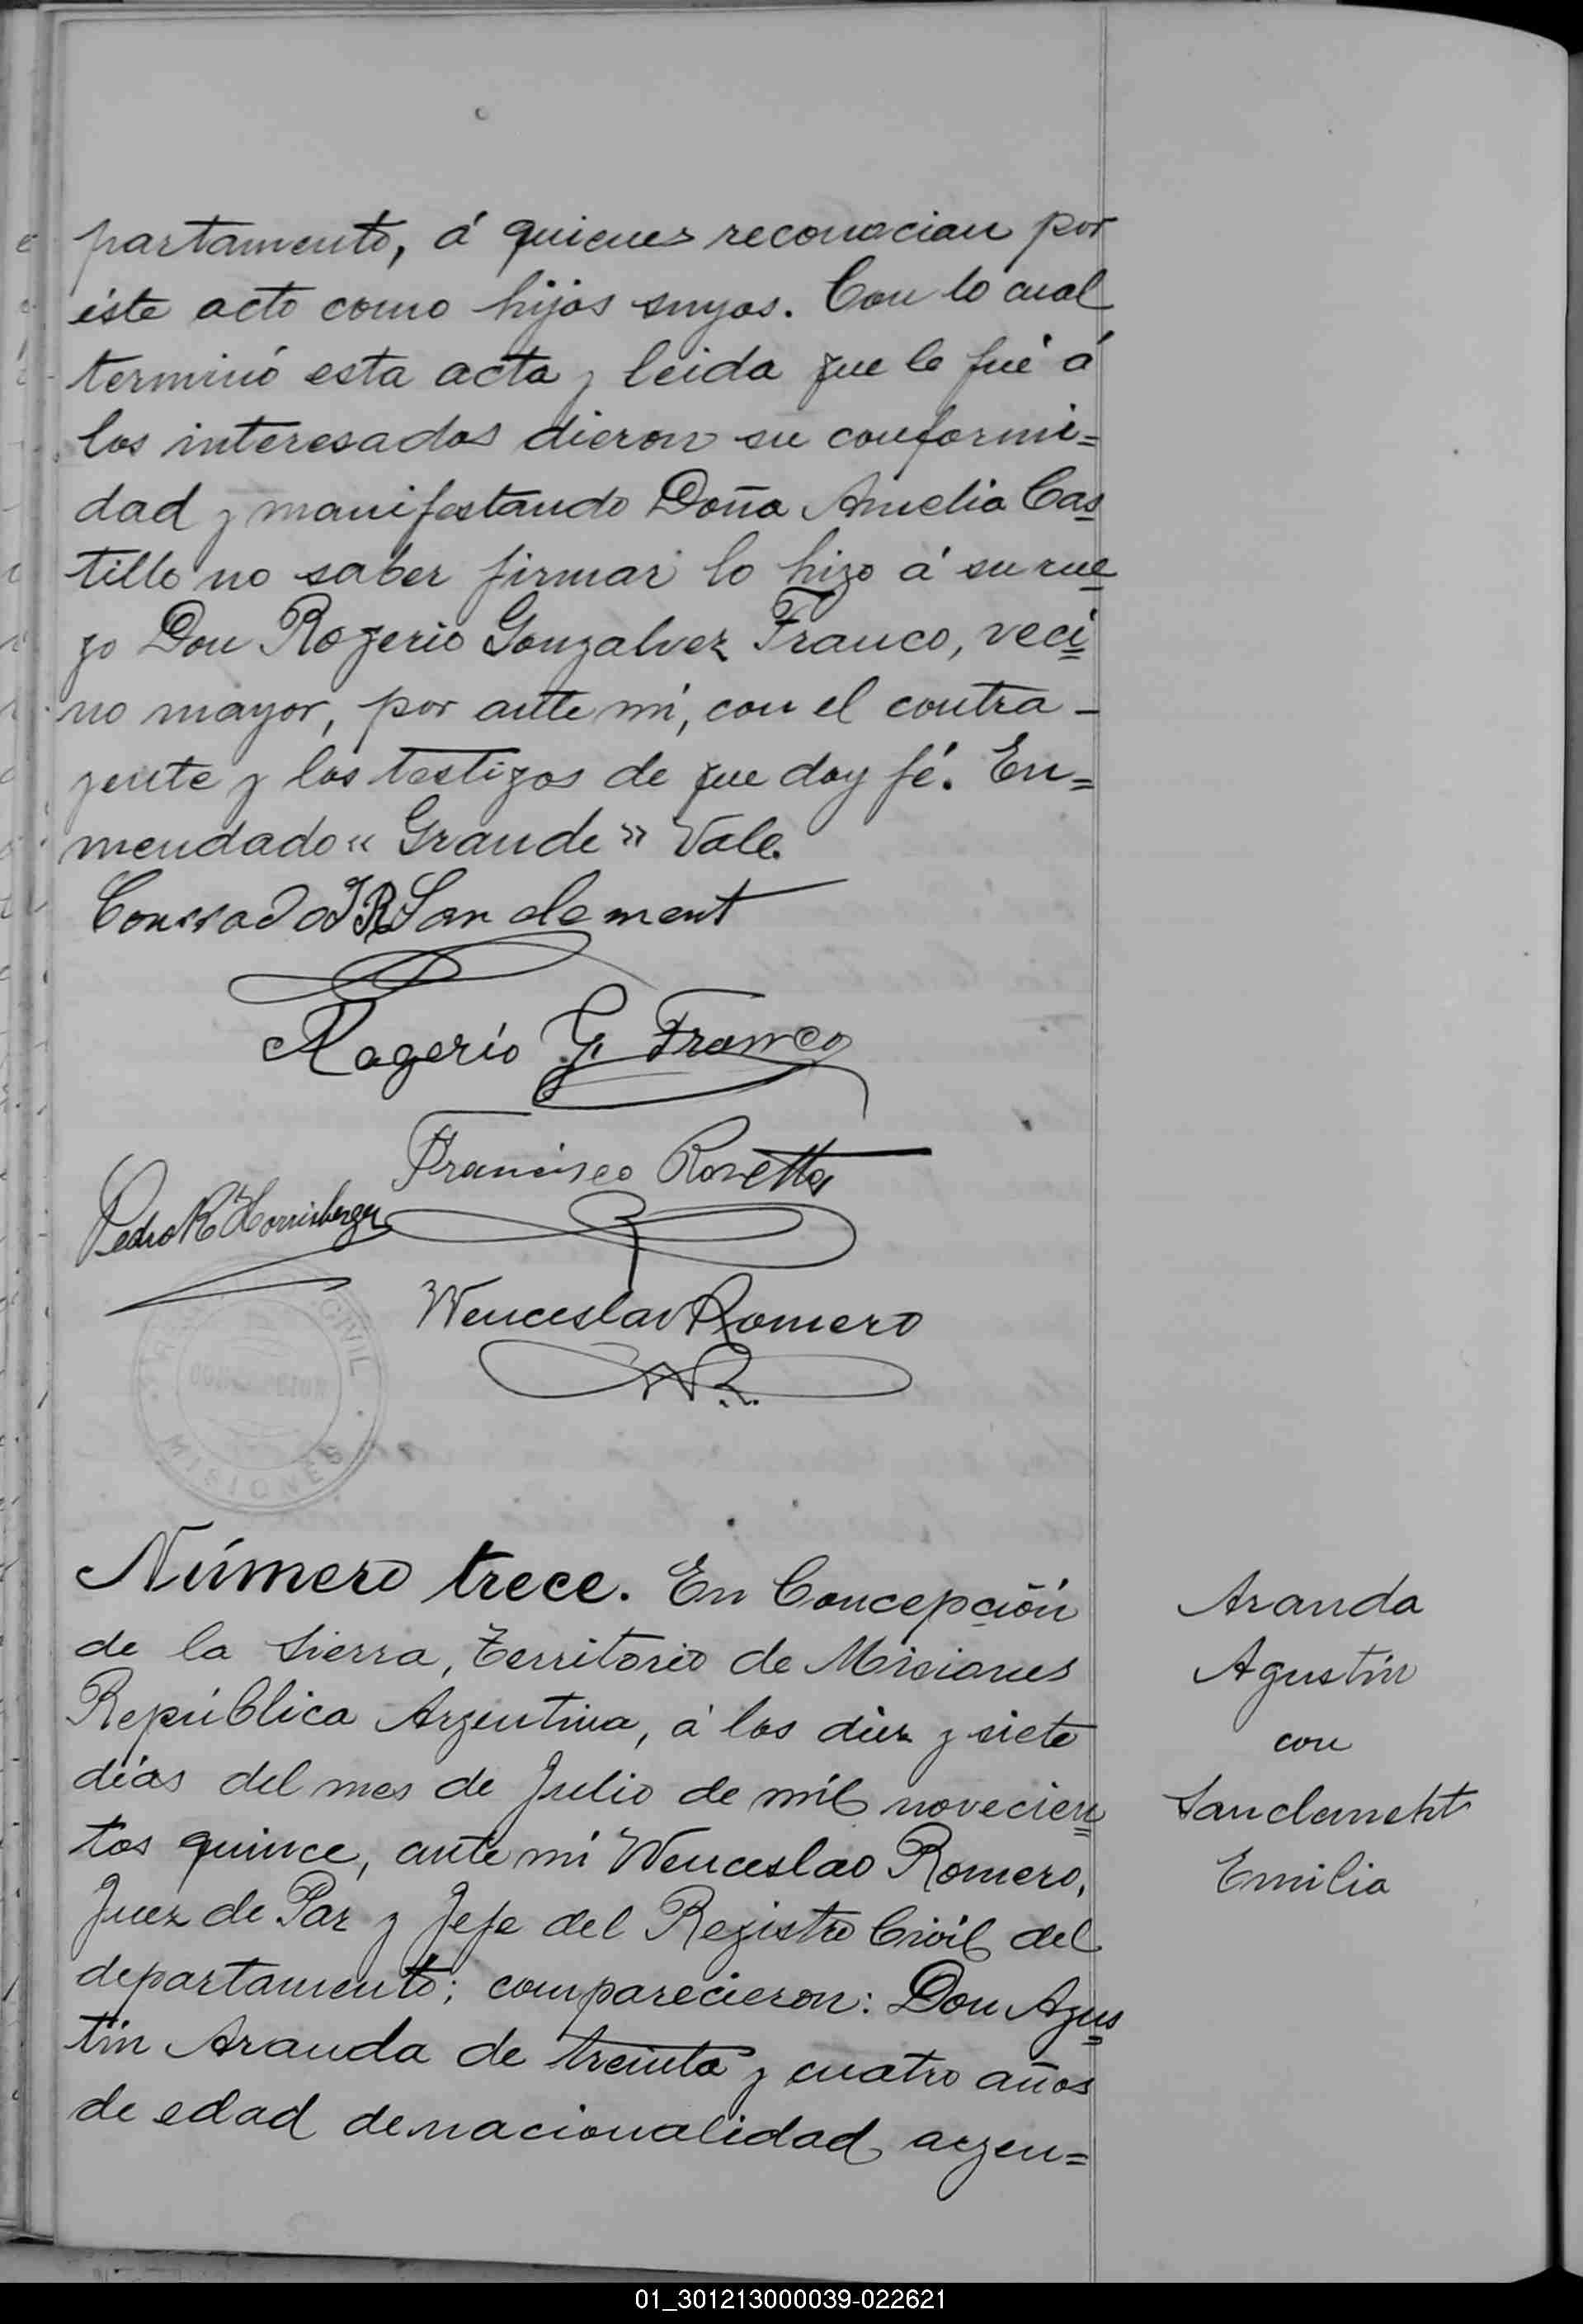 partamento, á quienes reconocian por
éste acto como hijos suyos. Con lo cual
terminó esta acta y leida que le fué á
los interesados dieron su conformi=
dad y manifestando Doña Amelia Cas
tillo no saber firmar lo hizo á su rue
go Don Rogerio Gonzalvez Franco, veci
no mayor, por ante mí, con el contra-
yente y los testigos de que doy fé. En=
mendado « Grande » Vale.
Conrado J R Sanclement
Rogerio G. Franco
Francisco Rovetta
Pedro R Horrisberger
Wenceslao Romero
W R.
CIVIL
MISIONES
Número trece. En Concepción
de la Sierra, Territorio de Misiones
República Argentina, á los diez y siete
días del mes de Julio de mil novecien
tos quince, ante mí Wenceslao Romero,
Juez de Paz y Jefe del Registro Civil del
departamento; comparecieron: Don Agus
tín Aranda de treinta y cuatro años
de edad de nacionalidad argen=
Aranda
Agustín
con
Sanclement
Emilia
01_301213000039-022621